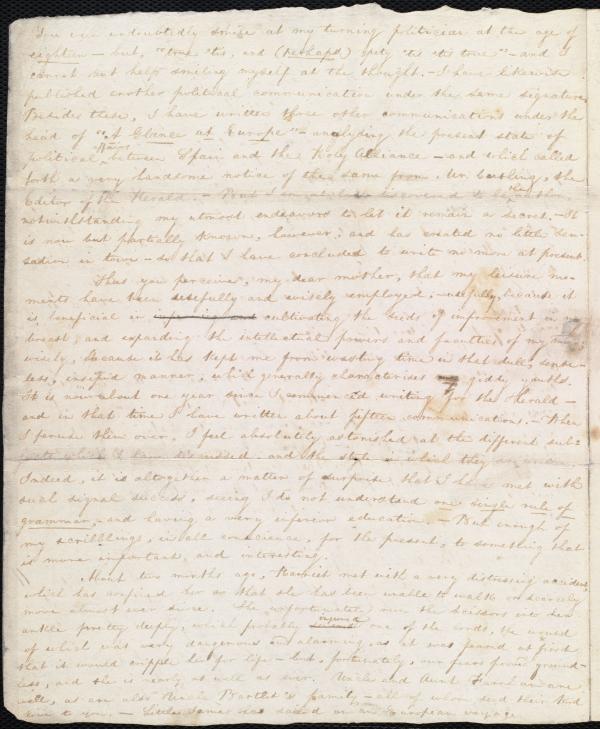 You will undoubtedly smile at my turning politician at the age of
eighteen — but, "true 'tis, and (perhaps) pity 'tis 'tis true" — and I
cannot but help smiling myself at the thought. — I have likewise
published another political communication under the same signature.
Besides these, I have written three other communications under the
head of "A Glance at Europe" — analyzing the present state of
political affairs between Spain and the Holy Alliance — and which called
forth a very handsome notice of the same from Mr. Cushing, the
Editor of the Herald. — But I
notwithstanding my utmost endeavors to let it remain a secret. — It
is now but partially known, however, and has created no little sen-
sation in town — so that I have concluded to write no more at present.
Thus you perceive, my dear mother, that my leisure mo-
ments have been usefully and wisely employed; — usefully, because it
is beneficial in cultivating the seeds of improvement in my
breast, and expanding the intellectual powers and faculties of my mind;
wisely, because it has kept me from wasting time in that dull, sense-
less, insipid manner, which generally characterises giddy youths.
It is now about one year since I commenced writing for the Herald —
and in that time I have written about fifteen communications. — When
I peruse them over, I feel absolutely astonished at the different sub-
jects which I have discussed, and the style in which they are written.
Indeed, it is altogether a matter of surprise that I have met with
such signal success, seeing I do not understand one single rule of
grammar, and having a very inferior education. — But enough of
my scribblings, in all conscience, for the present, to something that
is more important and interesting.
About two months ago, Harriet met with a very distressing accident,
which has confined her so that she has been unable to walk or scarcely
move almost ever since. She unfortunately run the scissors into her
ankle pretty deeply, which probably injured one of the cords, the wound
of which was very dangerous and alarming, as it was feared at first
that it would cripple her for life — but, fortunately, our fears prove ground-
less, and she is nearly as well as ever. Uncle and Aunt Farnham are
well, as are also Uncle Bartlet's family — all of whom send their kind
love to you. — Little James has sailed on an European voyage.